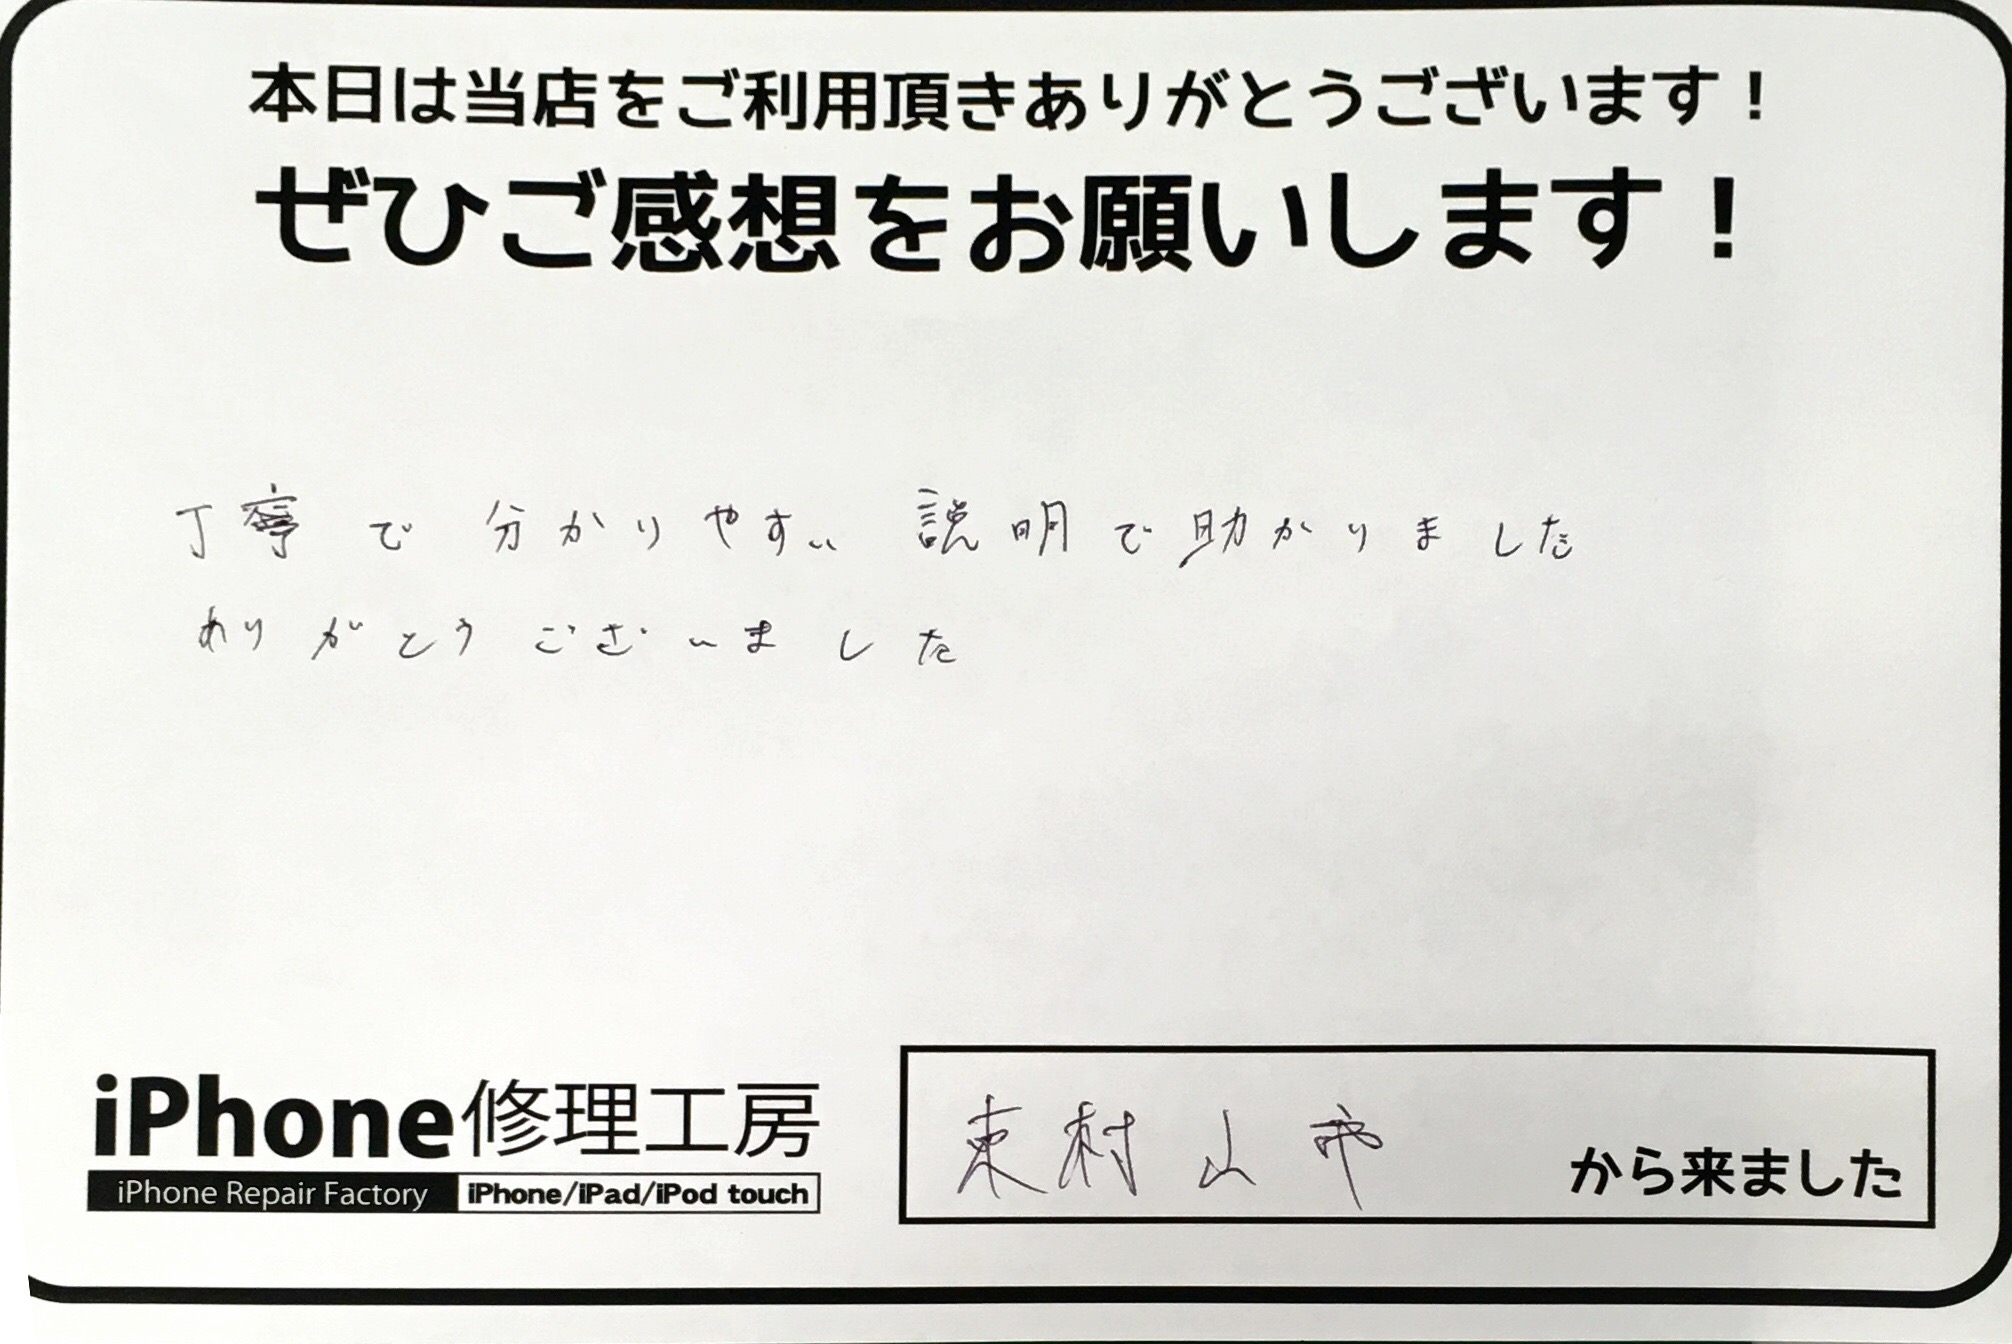 本日は当店をご利用頂きありがとうございます！
ぜひご感想をお願いします！
丁寧で分かりやすい説明で助かりました
ありがとうございました
iPhone修理工房
iPhone Repair Factory iPhone/iPad/iPod touch
東村山市 から来ました